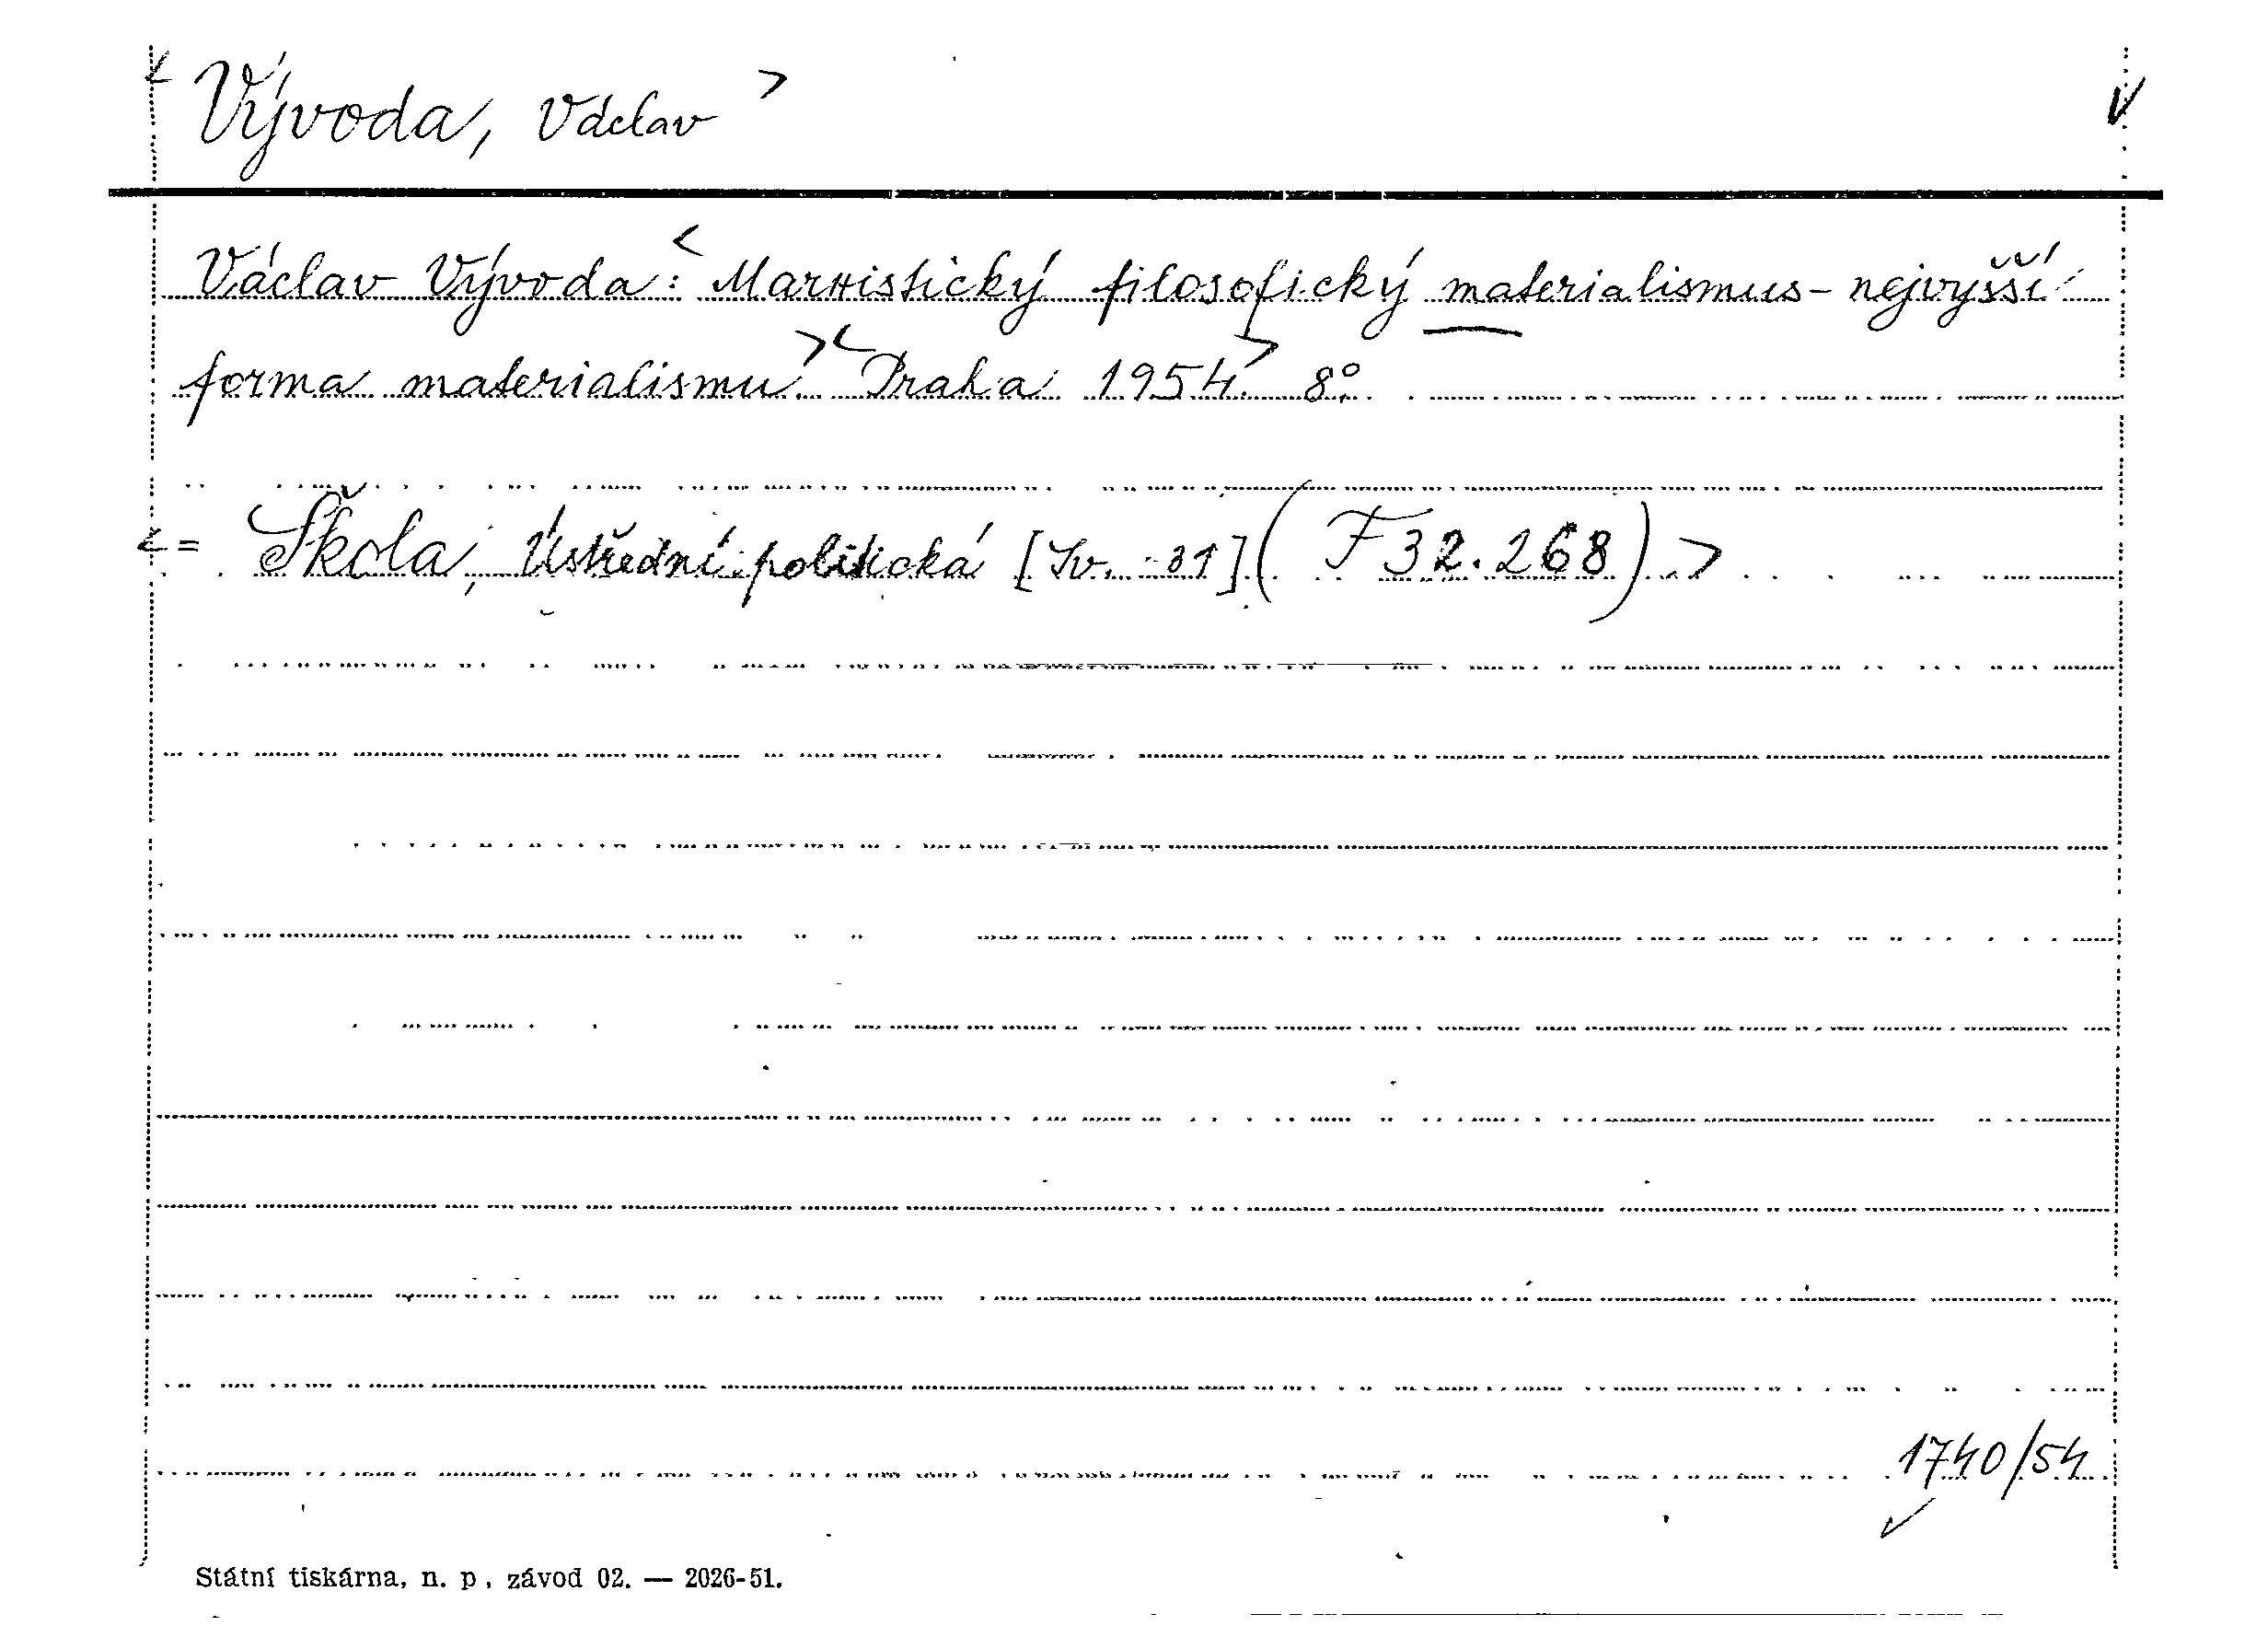 < Vývoda, Václav >
Václav Vývoda: < Marxistický filosofický materialismus - nejvyšší
forma materialismu. > < Praha 1954. > 8°.
< = Škola, Ústřední politická [Sv. 31] ( F 32.268 ) >
1740/54
Státní tiskárna, n. p., závod 02. — 2026-51.